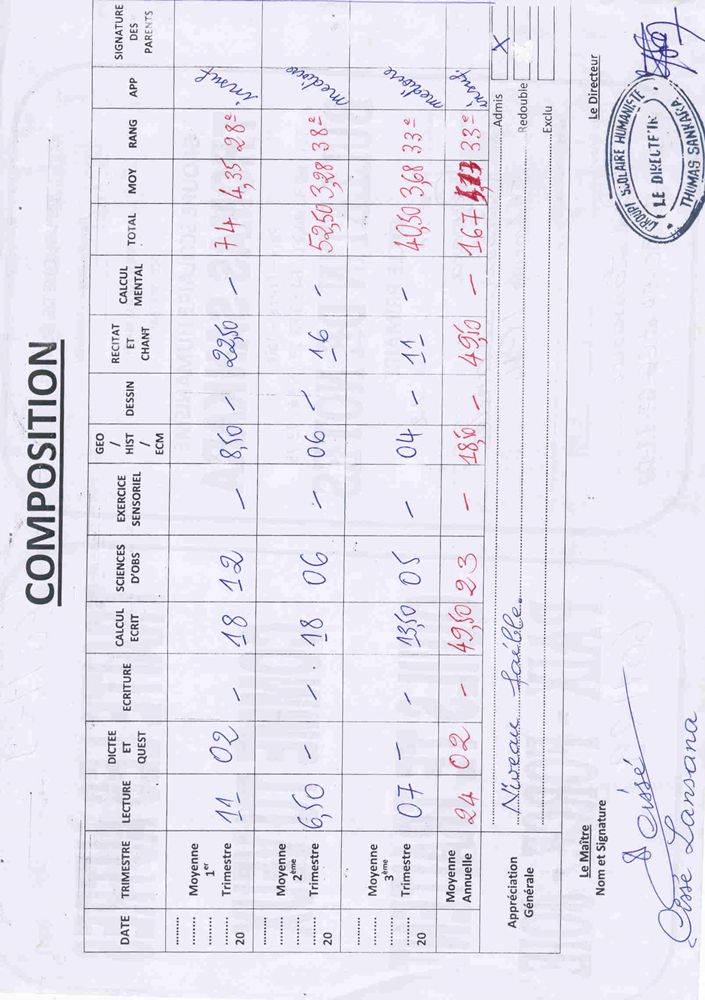 COMPOSITION
DATE TRIMESTRE LECTURE DICTEE ET QUEST ECRITURE CALCUL ECRIT SCIENCES D'OBS EXERCICE SENSORIEL GEO / HIST / ECM DESSIN RECITAT ET CHANT CALCUL MENTAL TOTAL MOY RANG APP SIGNATURE DES PARENTS
........ ........ ........ 20 Moyenne 1er Trimestre 11 02 - 18 12 - 8,50 - 22,50 - 74 4,35 28e insuf
........ ........ ........ 20 Moyenne 2ème Trimestre 6,50 - - 18 06 - 06 - 16 - 52,50 3,28 38e mediocre
........ ........ ........ 20 Moyenne 3ème Trimestre 07 - - 13,50 05 - 04 - 11 - 40,50 3,68 33e mediocre
Moyenne Annuelle 24 02 - 49,50 23 - 18,50 - 49,50 - 167 33e insuf
Appréciation Générale
Niveau faible.
Admis X
Redouble
Exclu
Le Maître
Nom et Signature
Cissé
Cisse Lansana
Le Directeur
GROUPE SCOLAIRE HUMANISTE
LE DIRECTEUR
THOMAS SANKARA